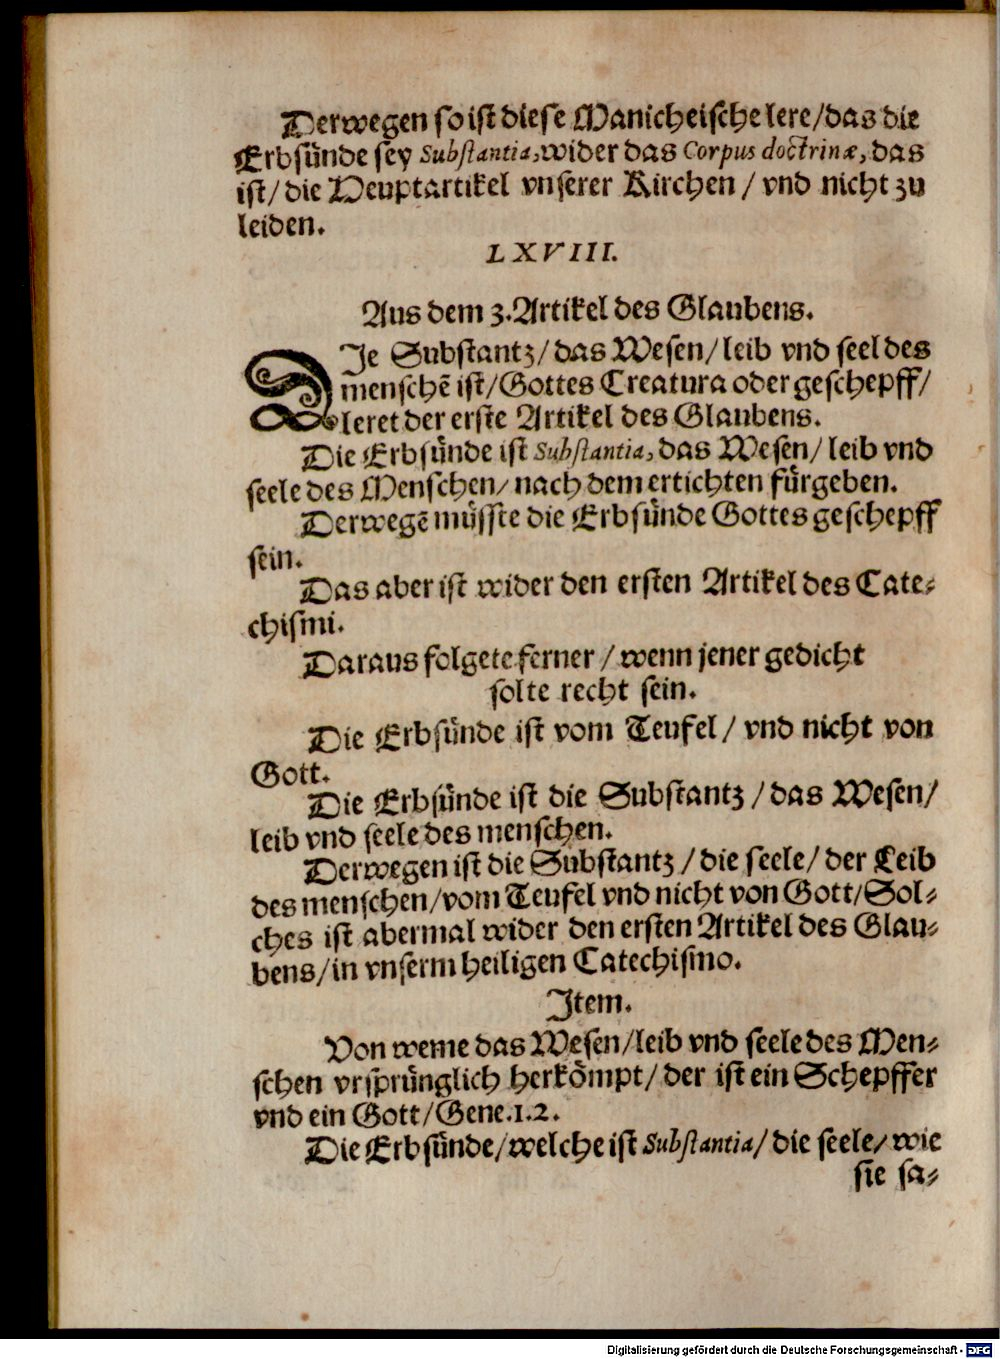 Derwegen so ist diese Manicheische lere/das die
Erbsünde sey Substantia, wider das Corpus doctrinæ, das
ist/ die Heuptartikel vnserer Kirchen / vnd nicht zu
leiden.
LXVIII.
Aus dem 3. Artikel des Glaubens.
DJe Substantz/ das Wesen/ leib vnd seel des
menschē ist/ Gottes Creatura oder geschepff/
leret der erste Artikel des Glaubens.
Die Erbsünde ist Substantia, das Wesen/ leib vnd
seele des Menschen/ nach dem ertichten fürgeben.
Derwegē müsste die Erbsünde Gottes geschepff
sein.
Das aber ist wider den ersten Artikel des Cate⸗
chismi.
Daraus folgete ferner / wenn jener gedicht
solte recht sein.
Die Erbsünde ist vom Teufel / vnd nicht von
Gott.
Die Erbsünde ist die Substantz / das Wesen/
leib vnd seele des menschen.
Derwegen ist die Substantz / die seele/ der Leib
des menschen/ vom Teufel vnd nicht von Gott/ Sol⸗
ches ist abermal wider den ersten Artikel des Glau⸗
bens/ in vnserm heiligen Catechismo.
Jtem.
Von weme das Wesen/ leib vnd seele des Men⸗
schen vrsprünglich herkömpt/ der ist ein Schepffer
vnd ein Gott/ Gene.1.2.
Die Erbsünde/ welche ist Substantia/ die seele/ wie
sie sa⸗
Digitalisierung gefördert durch die Deutsche Forschungsgemeinschaft - DFG